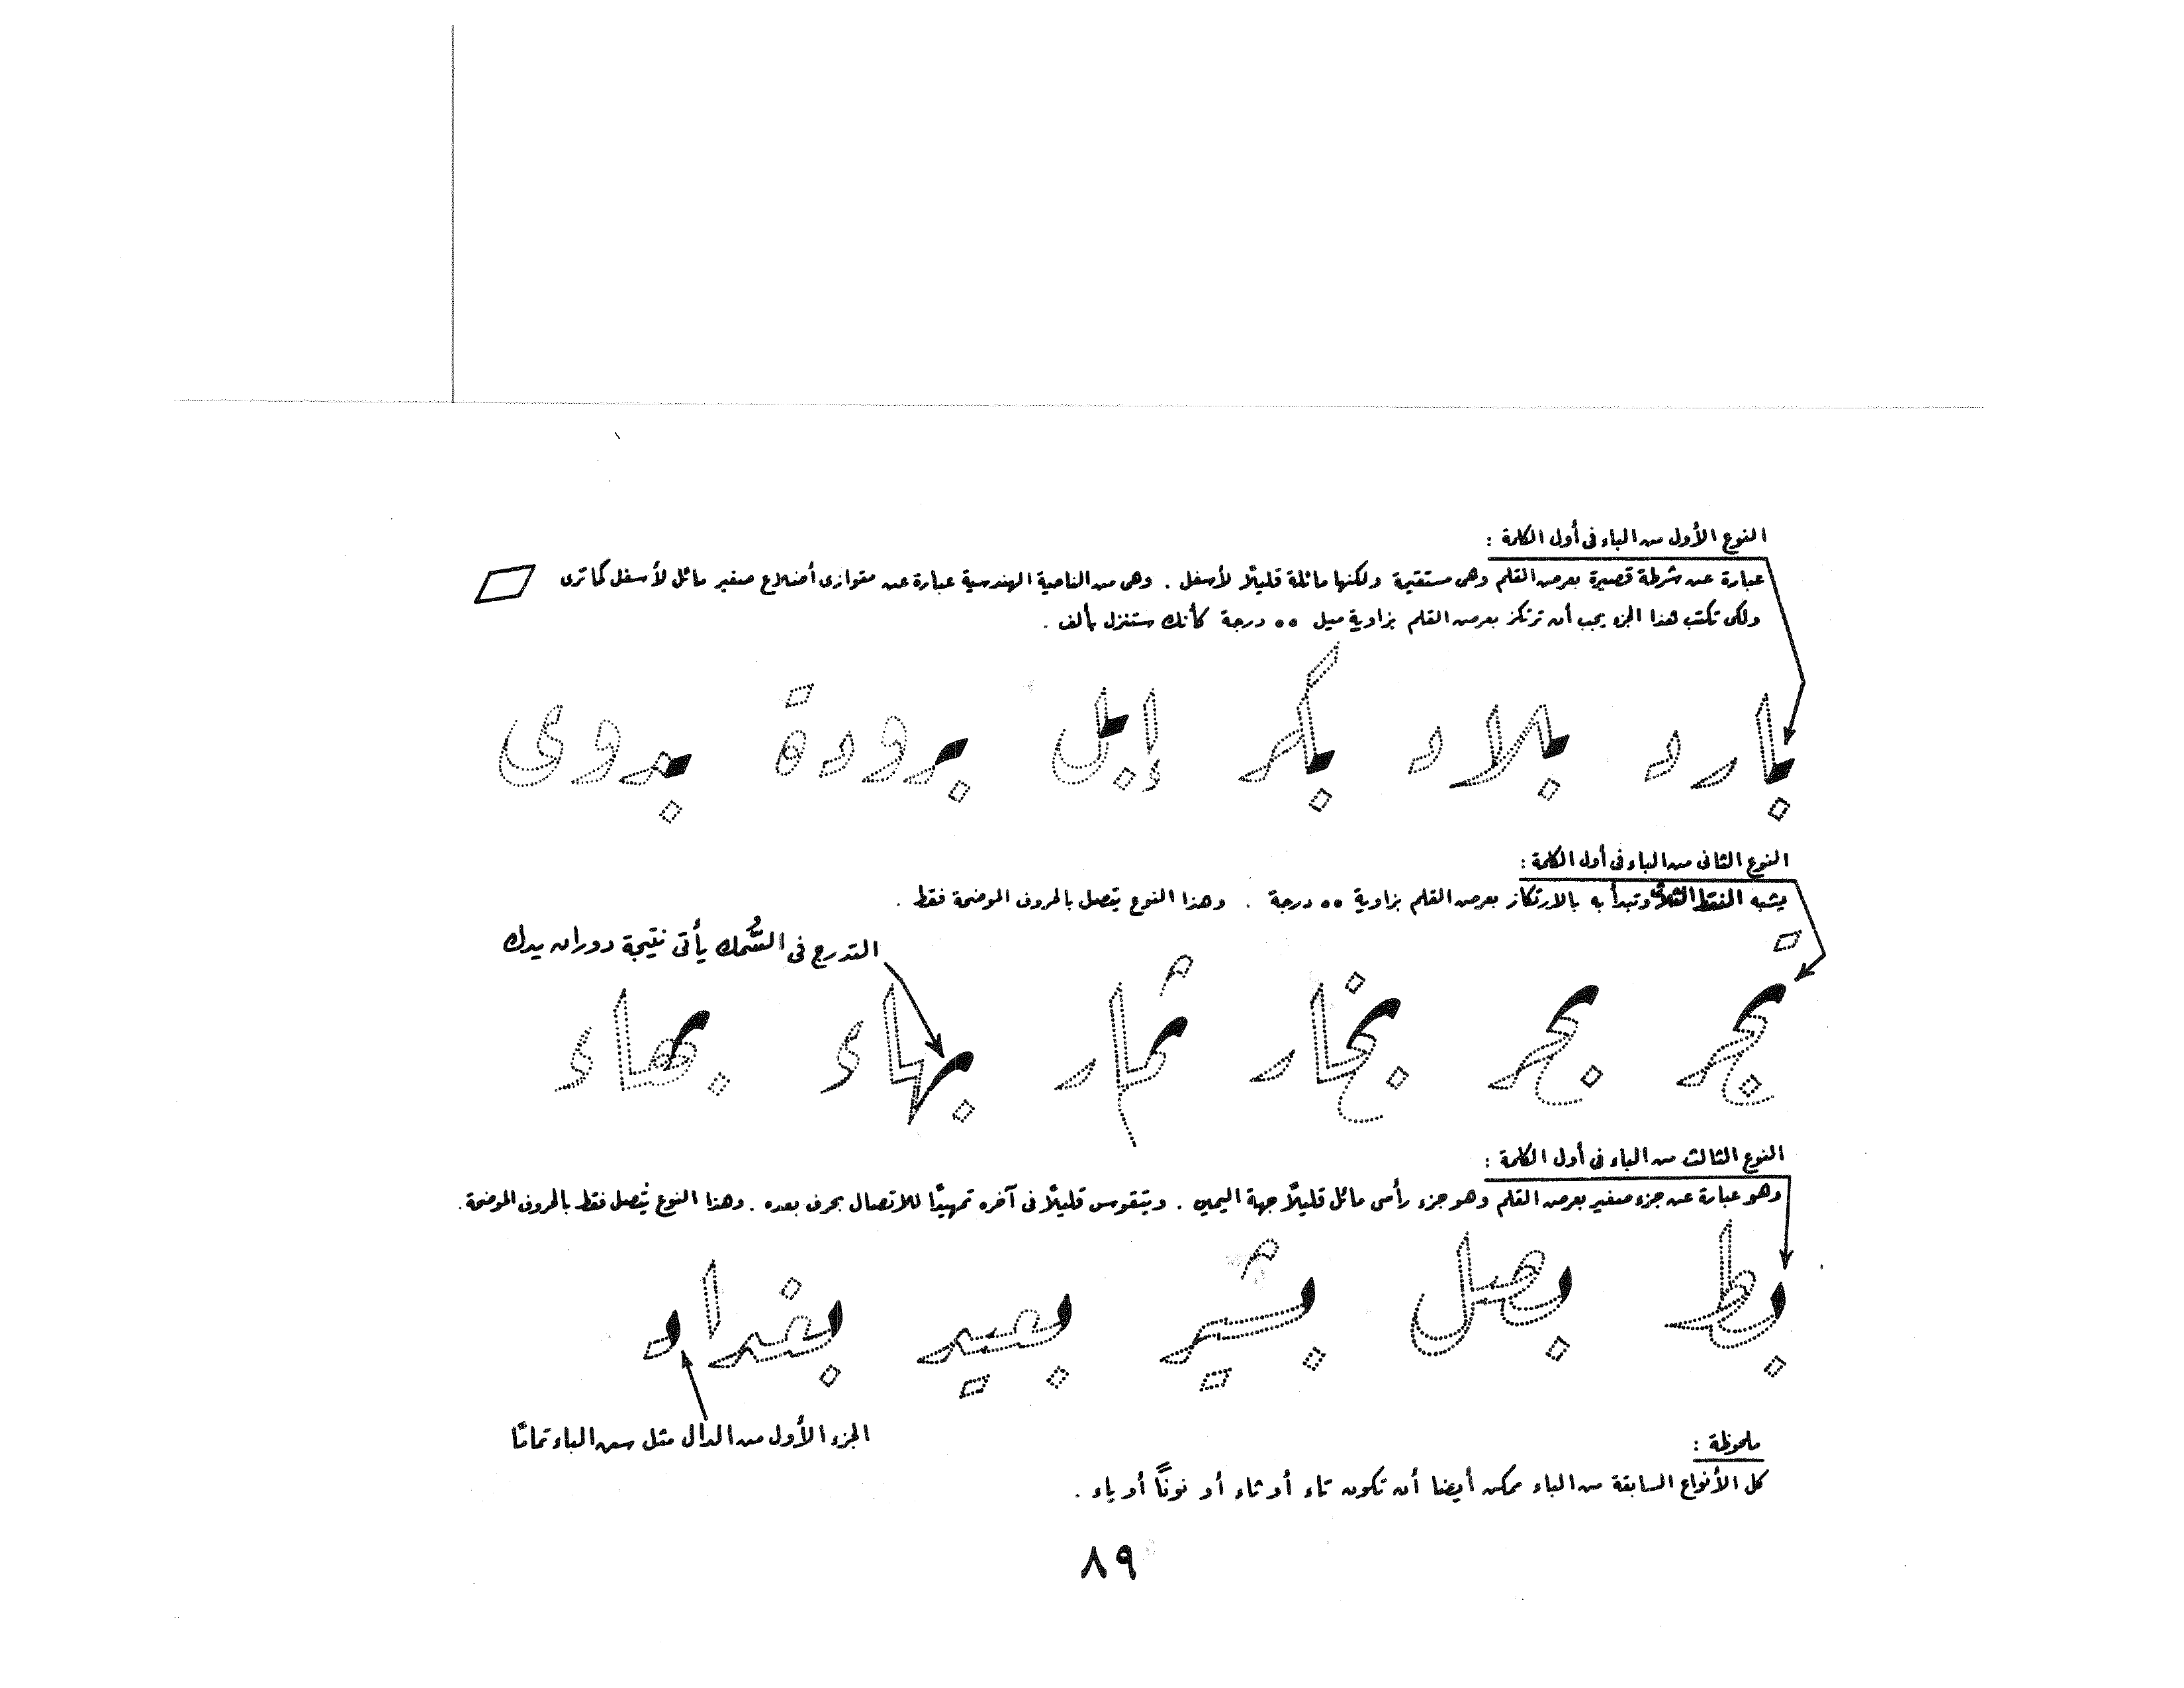 النوع الأول من الباء فى أول الكلمة :
عبارة عن شرطة قصيرة بعرض القلم وهى مستقيمة ولكنها مائلة قليلًا لأسفل . وهى من الناحية الهندسية عبارة عن متوازى أضلاع صغير مائل لأسفل كما ترى
ولكى تكتب هذا الجزء يجب أن ترتكز بعرض القلم بزاوية ميل ٥٥ درجة كأنك ستنزل بألف .
بارد بلاد بكر إبل برودة بدوى
النوع الثانى من الباء فى أول الكلمة :
يشبه النقط الثلاث وتبدأ به بالارتكاز بعرض القلم بزاوية ٥٥ درجة . وهذا النوع يتصل بالحروف الموضحة فقط .
التدرج فى السُّمك يأتى نتيجة دوران يدك
تجر بحر بخار ثمار بهاء بهاء
النوع الثالث من الباء فى أول الكلمة :
وهو عبارة عن جزء صغير بعرض القلم وهو جزء رأسى مائل قليلًا جهة اليمين . ويتقوس قليلًا فى آخره تمهيدًا للاتصال بحرف بعده . وهذا النوع يتصل فقط بالحروف الموضحة .
بط بصل بشير بعير بغداد
الجزء الأول من الدال مثل سن الباء تمامًا
ملحوظة :
كل الأنواع السابقة من الباء ممكن أيضا أن تكون تاء أو ثاء أو نونًا أو ياء .
٨٩